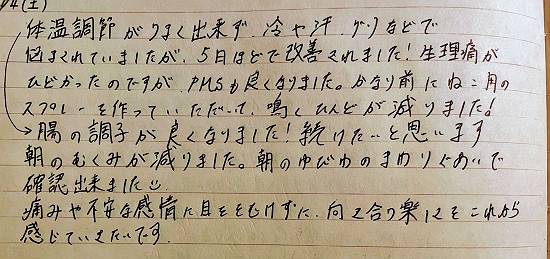 /4(土)
体温調節がうまく出来ず、冷や汗、ゲリなどで
悩まされていましたが、5日ほどで改善されました!生理痛が
ひどかったのですが、PMSも良くなりました。かなり前にねこ用の
スプレーを作っていただいて、鳴くひんどが減りました!
→腸の調子が良くなりました!続けたいと思います
朝のむくみが減りました。朝のゆびわのまわりぐあいで
確認出来ました
痛みや不安な感情に目をそむけずに、向き合う楽しさをこれから
感じていきたいです。